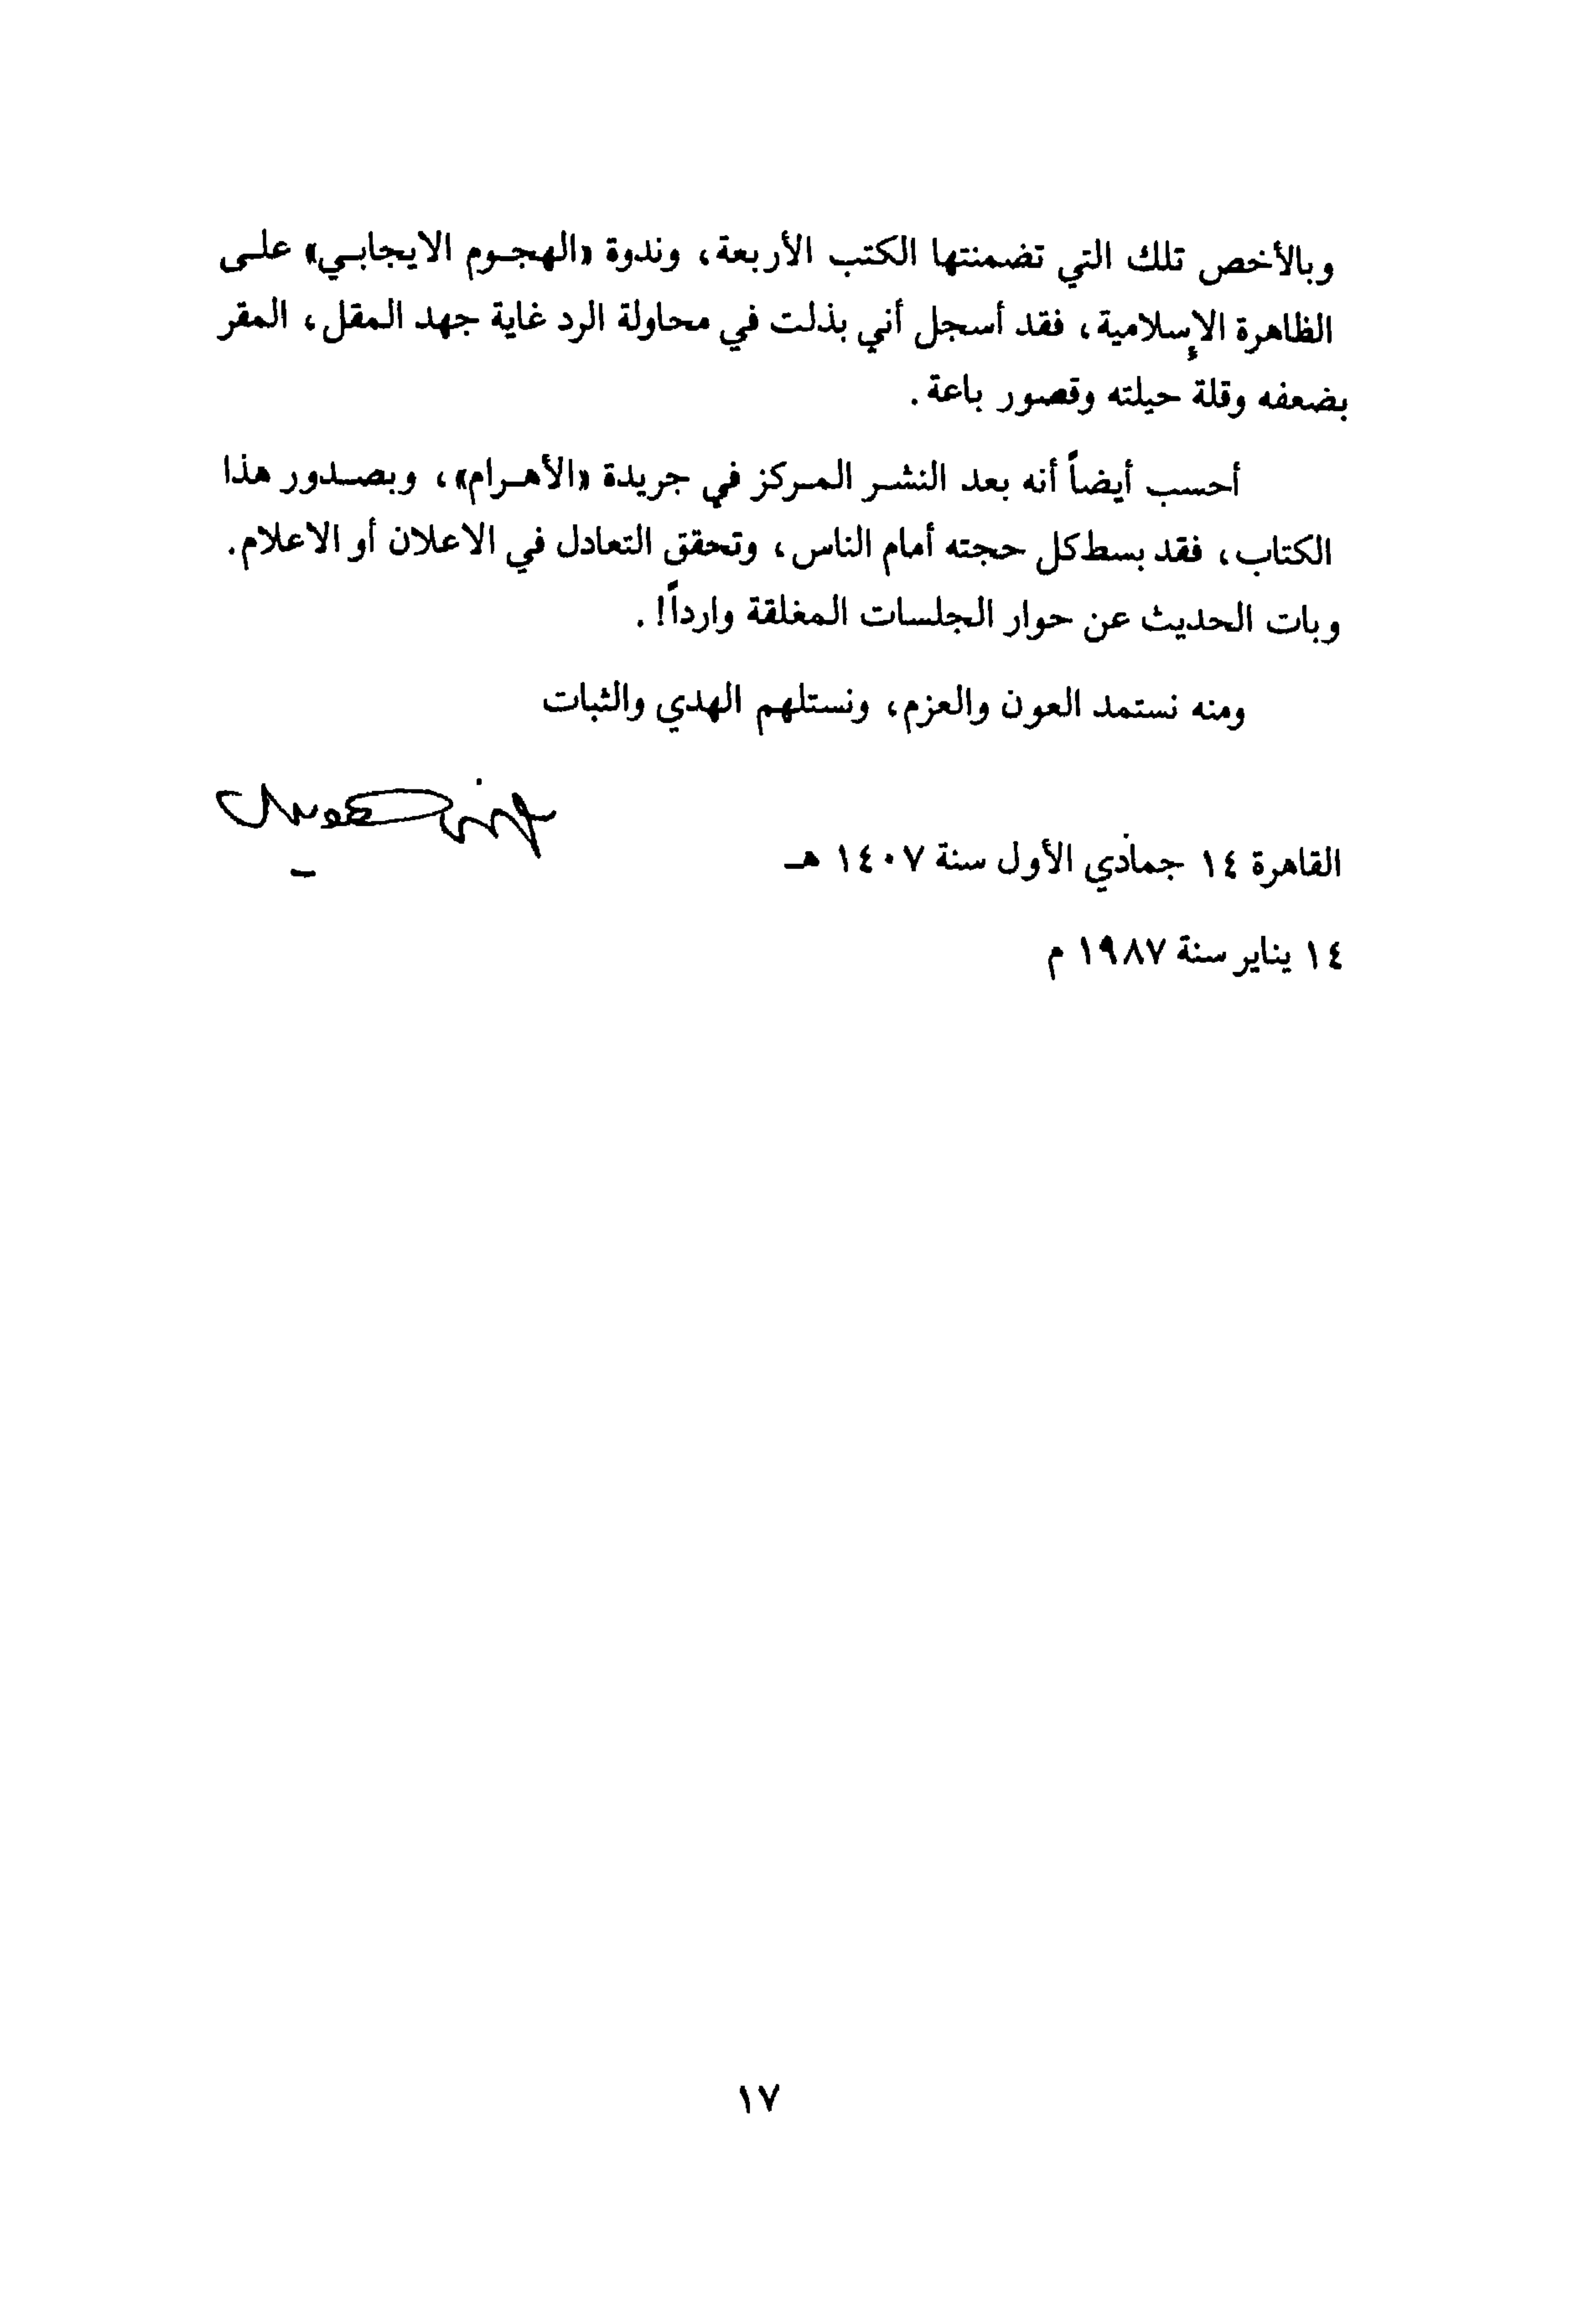 وبالأخص تلك التي تضمنتها الكتب الأربعة، وندوة «الهجوم الايجابي» على
الظاهرة الإسلامية، فقد أسجل أني بذلت في محاولة الرد غاية جهد المقل، المقر
بضعفه وقلة حيلته وقصور باعة.
أحسب أيضاً أنه بعد النشر المركز في جريدة «الأهرام»، وبصدور هذا
الكتاب، فقد بسط كل حجته أمام الناس، وتحقق التعادل في الاعلان أو الاعلام.
وبات الحديث عن حوار الجلسات المغلقة وارداً! .
ومنه نستمد العون والعزم، ونستلهم الهدي والثبات
القاهرة ١٤ جمادي الأول سنة ١٤٠٧ هـ
١٤ يناير سنة ١٩٨٧ م
١٧